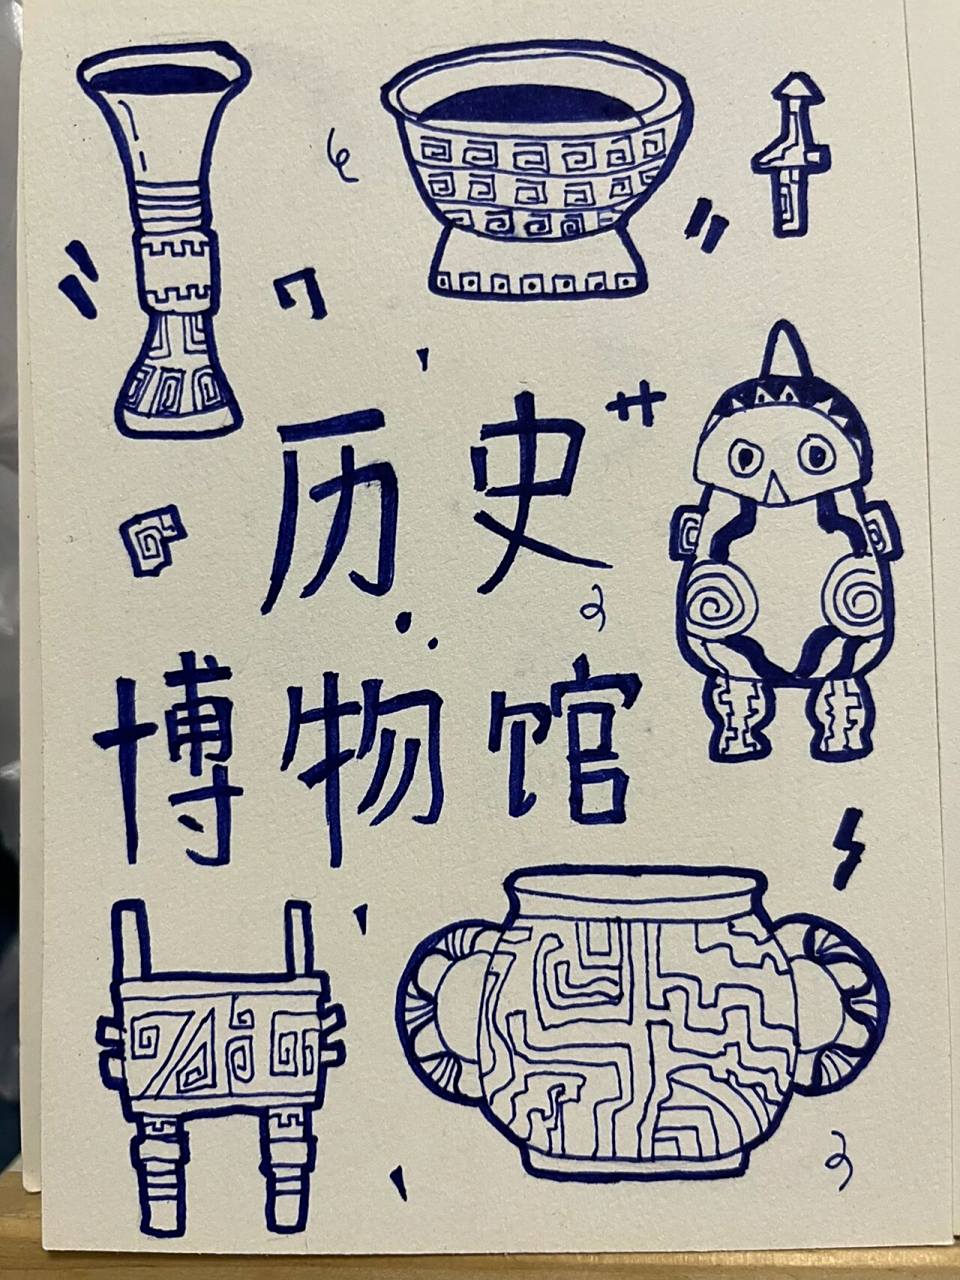 历史
博物馆